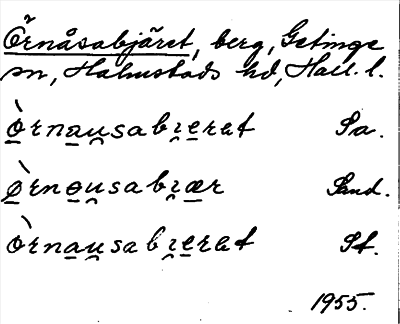 Örnåsabjäret, berg, Getinge
sn, Halmstads hd, Hall. l.
ò̱rna̱u̯sabi̯e̱rat Sa.
ø̱̀rnɵ̱u̯sabi̯æ̱r Sand.
òrna̱u̯sabi̯e̱rat St.
1955.